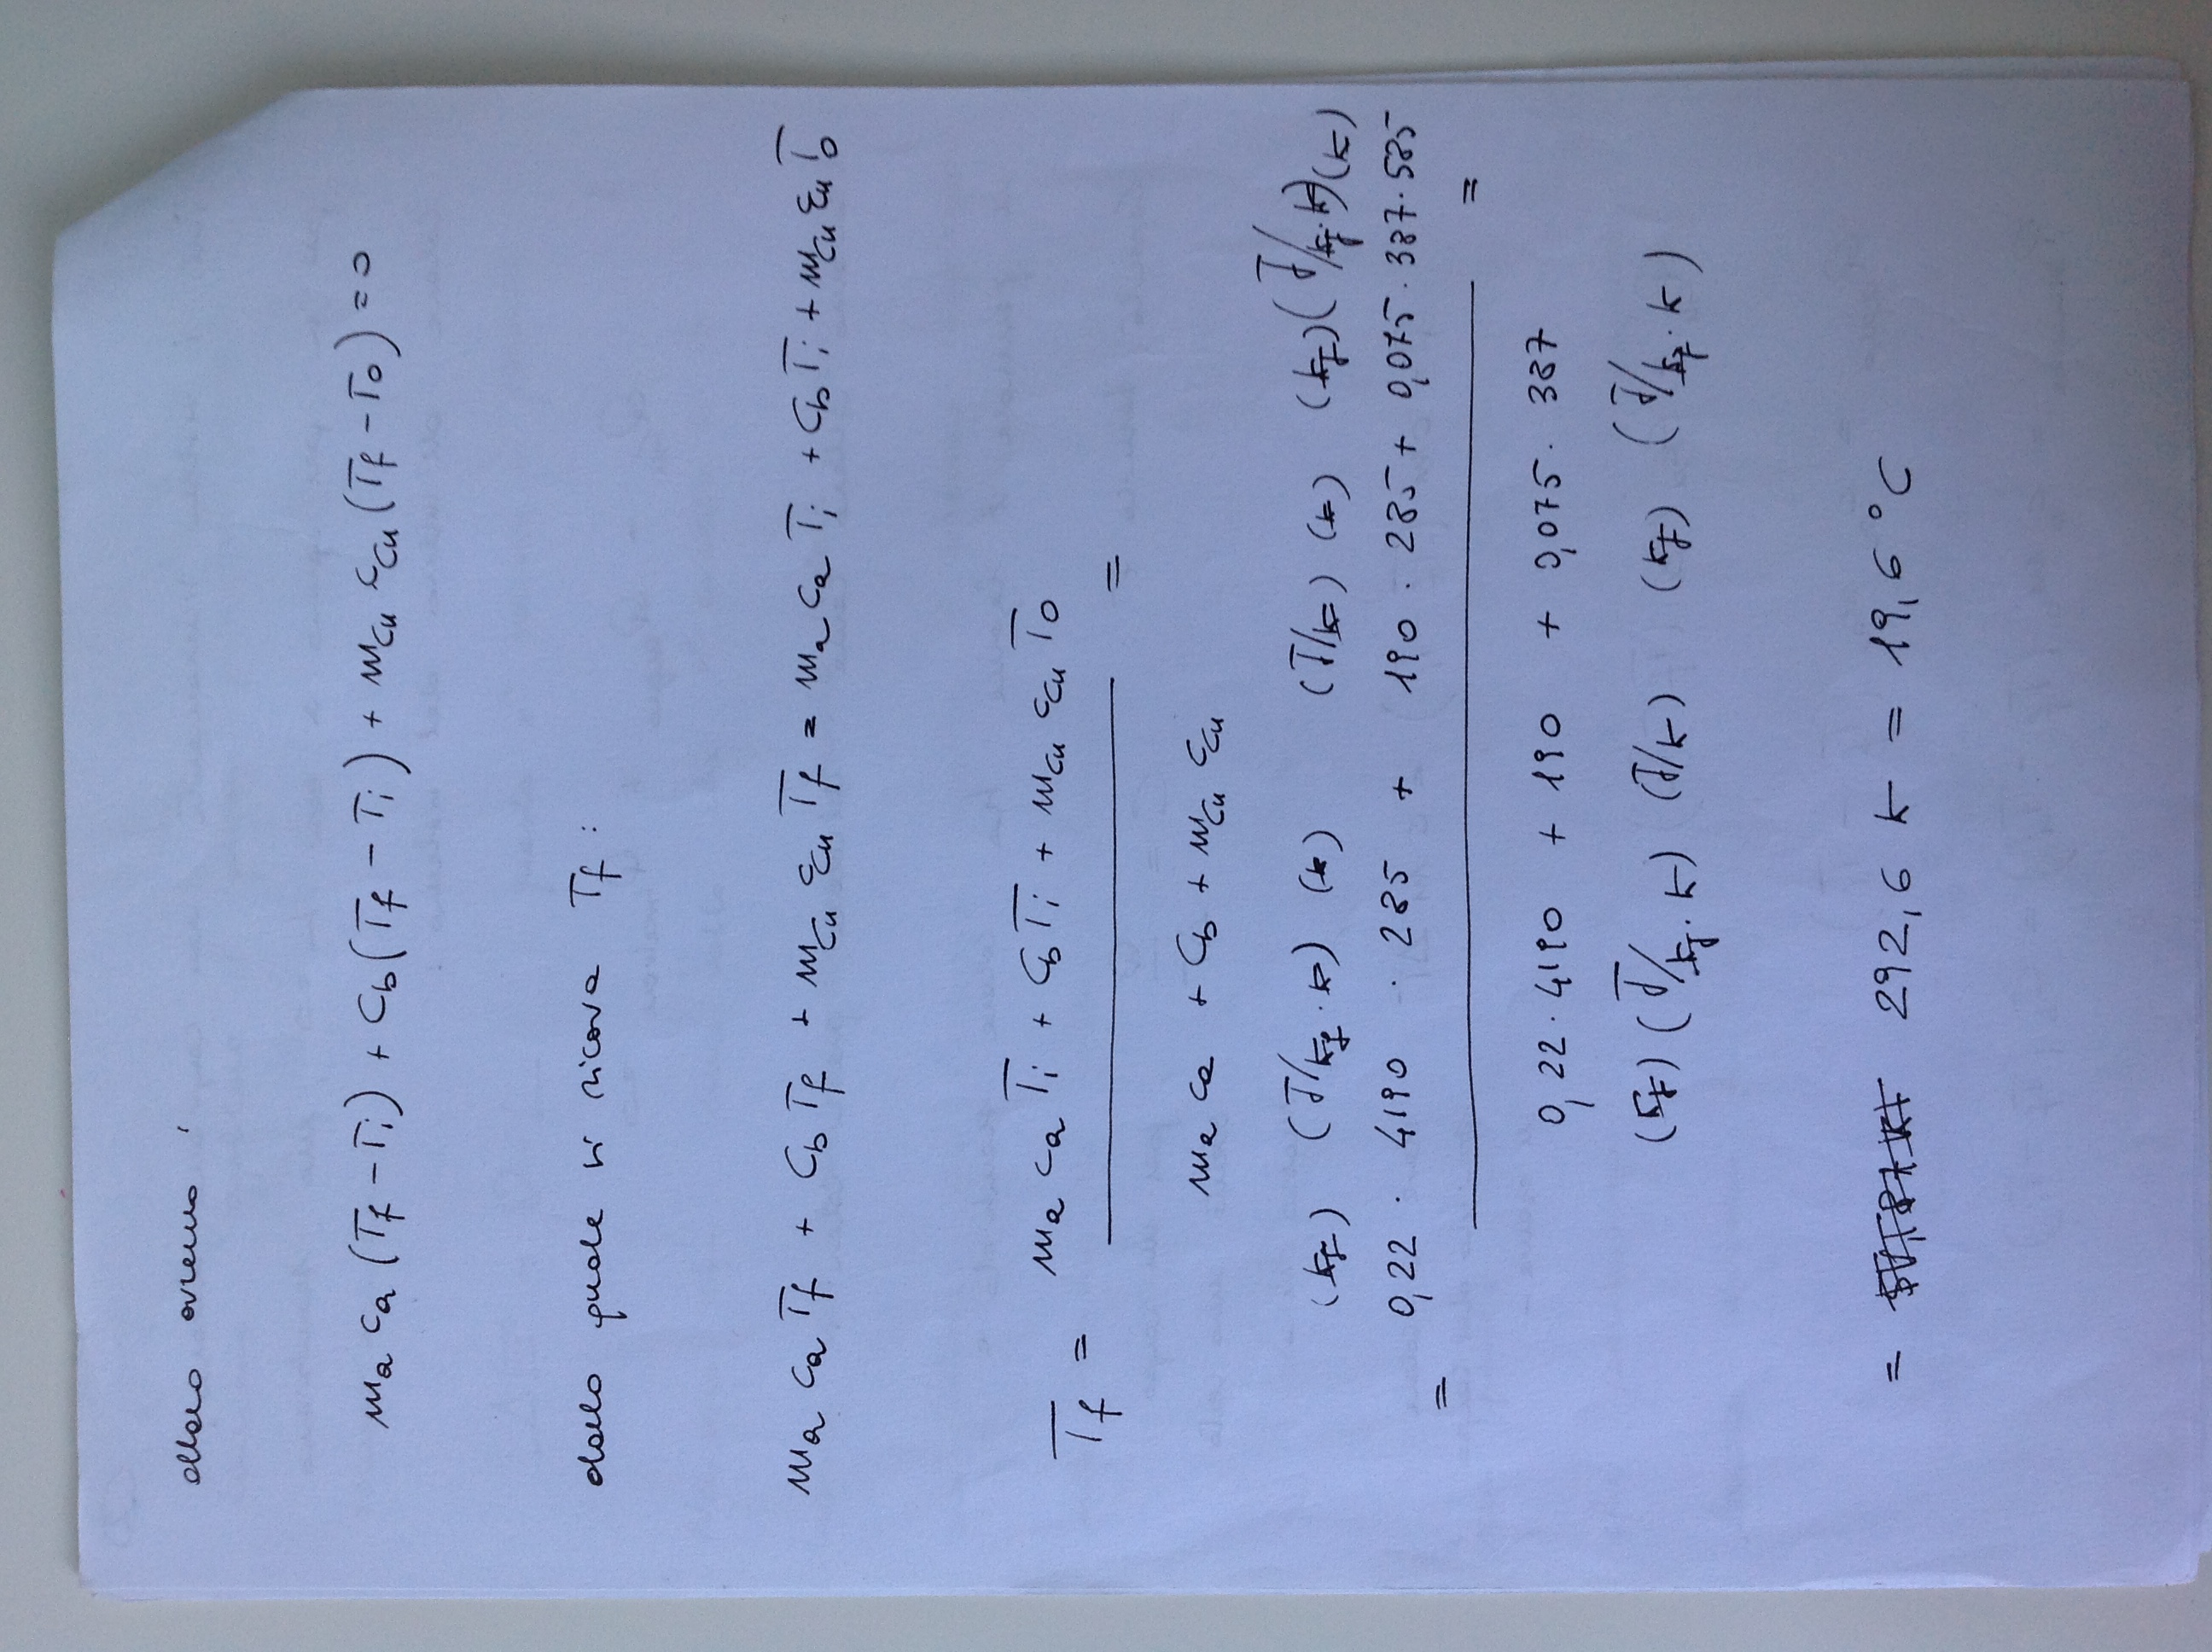 allora avremo :
ma ca (Tf - Ti) + Cb (Tf - Ti) + mCu cCu (Tf - T0) = 0
dalla quale si ricava Tf :
ma ca Tf + Cb Tf + mCu cCu Tf = ma ca Ti + Cb Ti + mCu cCu T0
Tf = ma ca Ti + Cb Ti + mCu cCu T0 =
ma ca + Cb + mCu cCu
(kg) (J/kg · K) (K) (J/K) (K) (kg) (J/kg · K) (K)
= 0,22 · 4190 · 285 + 190 · 285 + 0,075 · 387 · 585 =
0,22 · 4190 + 190 + 0,075 · 387
(kg) (J/kg · K) (J/K) (kg) (J/kg · K)
= 292,6 K = 19,6 °C